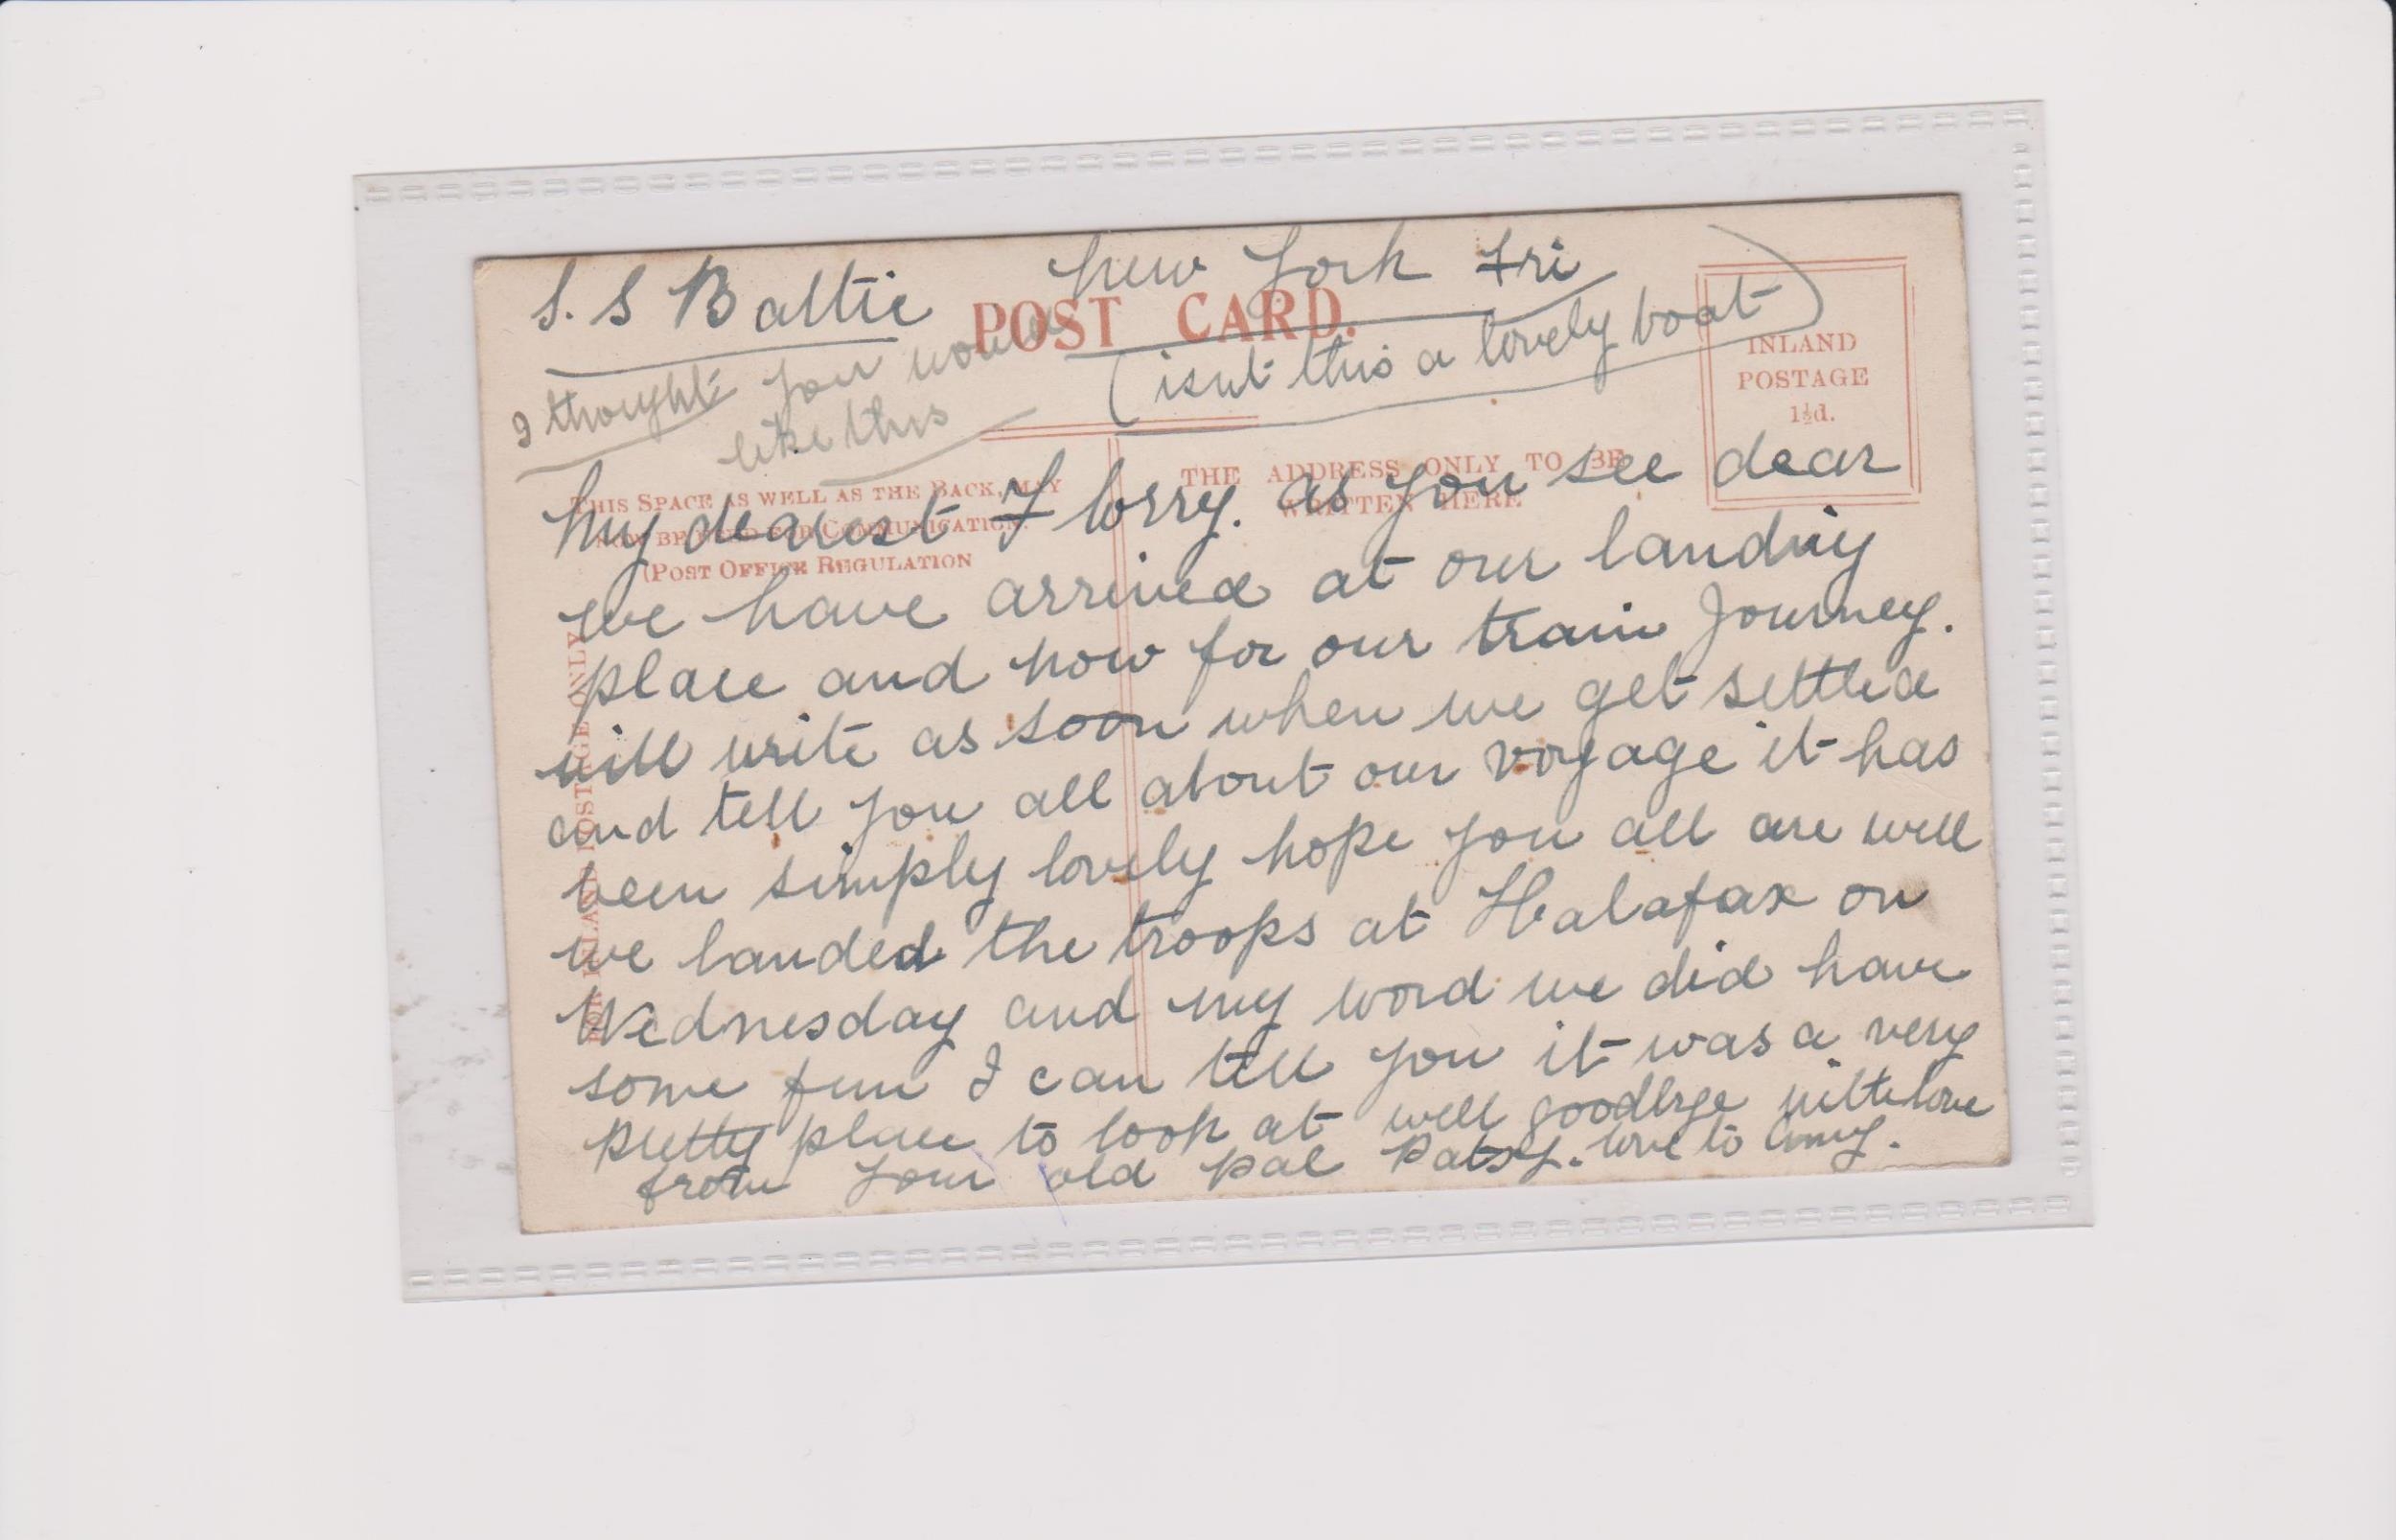 S.S Baltic New York Fri
POST CARD.
I thought you would
like this
(isnt this a lovely boat)
INLAND
POSTAGE
1½d.
THIS SPACE AS WELL AS THE BACK, MAY
NOW BE USED FOR COMMUNICATION.
(POST OFFICE REGULATION
THE ADDRESS ONLY TO BE
WRITTEN HERE
FOR INLAND POSTAGE ONLY
My dearest Florry. as you see dear
we have arrived at our landing
place and now for our train Journey.
will write as soon when we get settled
and tell you all about our voyage it has
been simply lovely hope you all are well
we landed the troops at Halafax on
Wednesday and my word we did have
some fun I can tell you it was a very
pretty place to look at well goodbye with love
from your old pal Patsy. love to Amy.